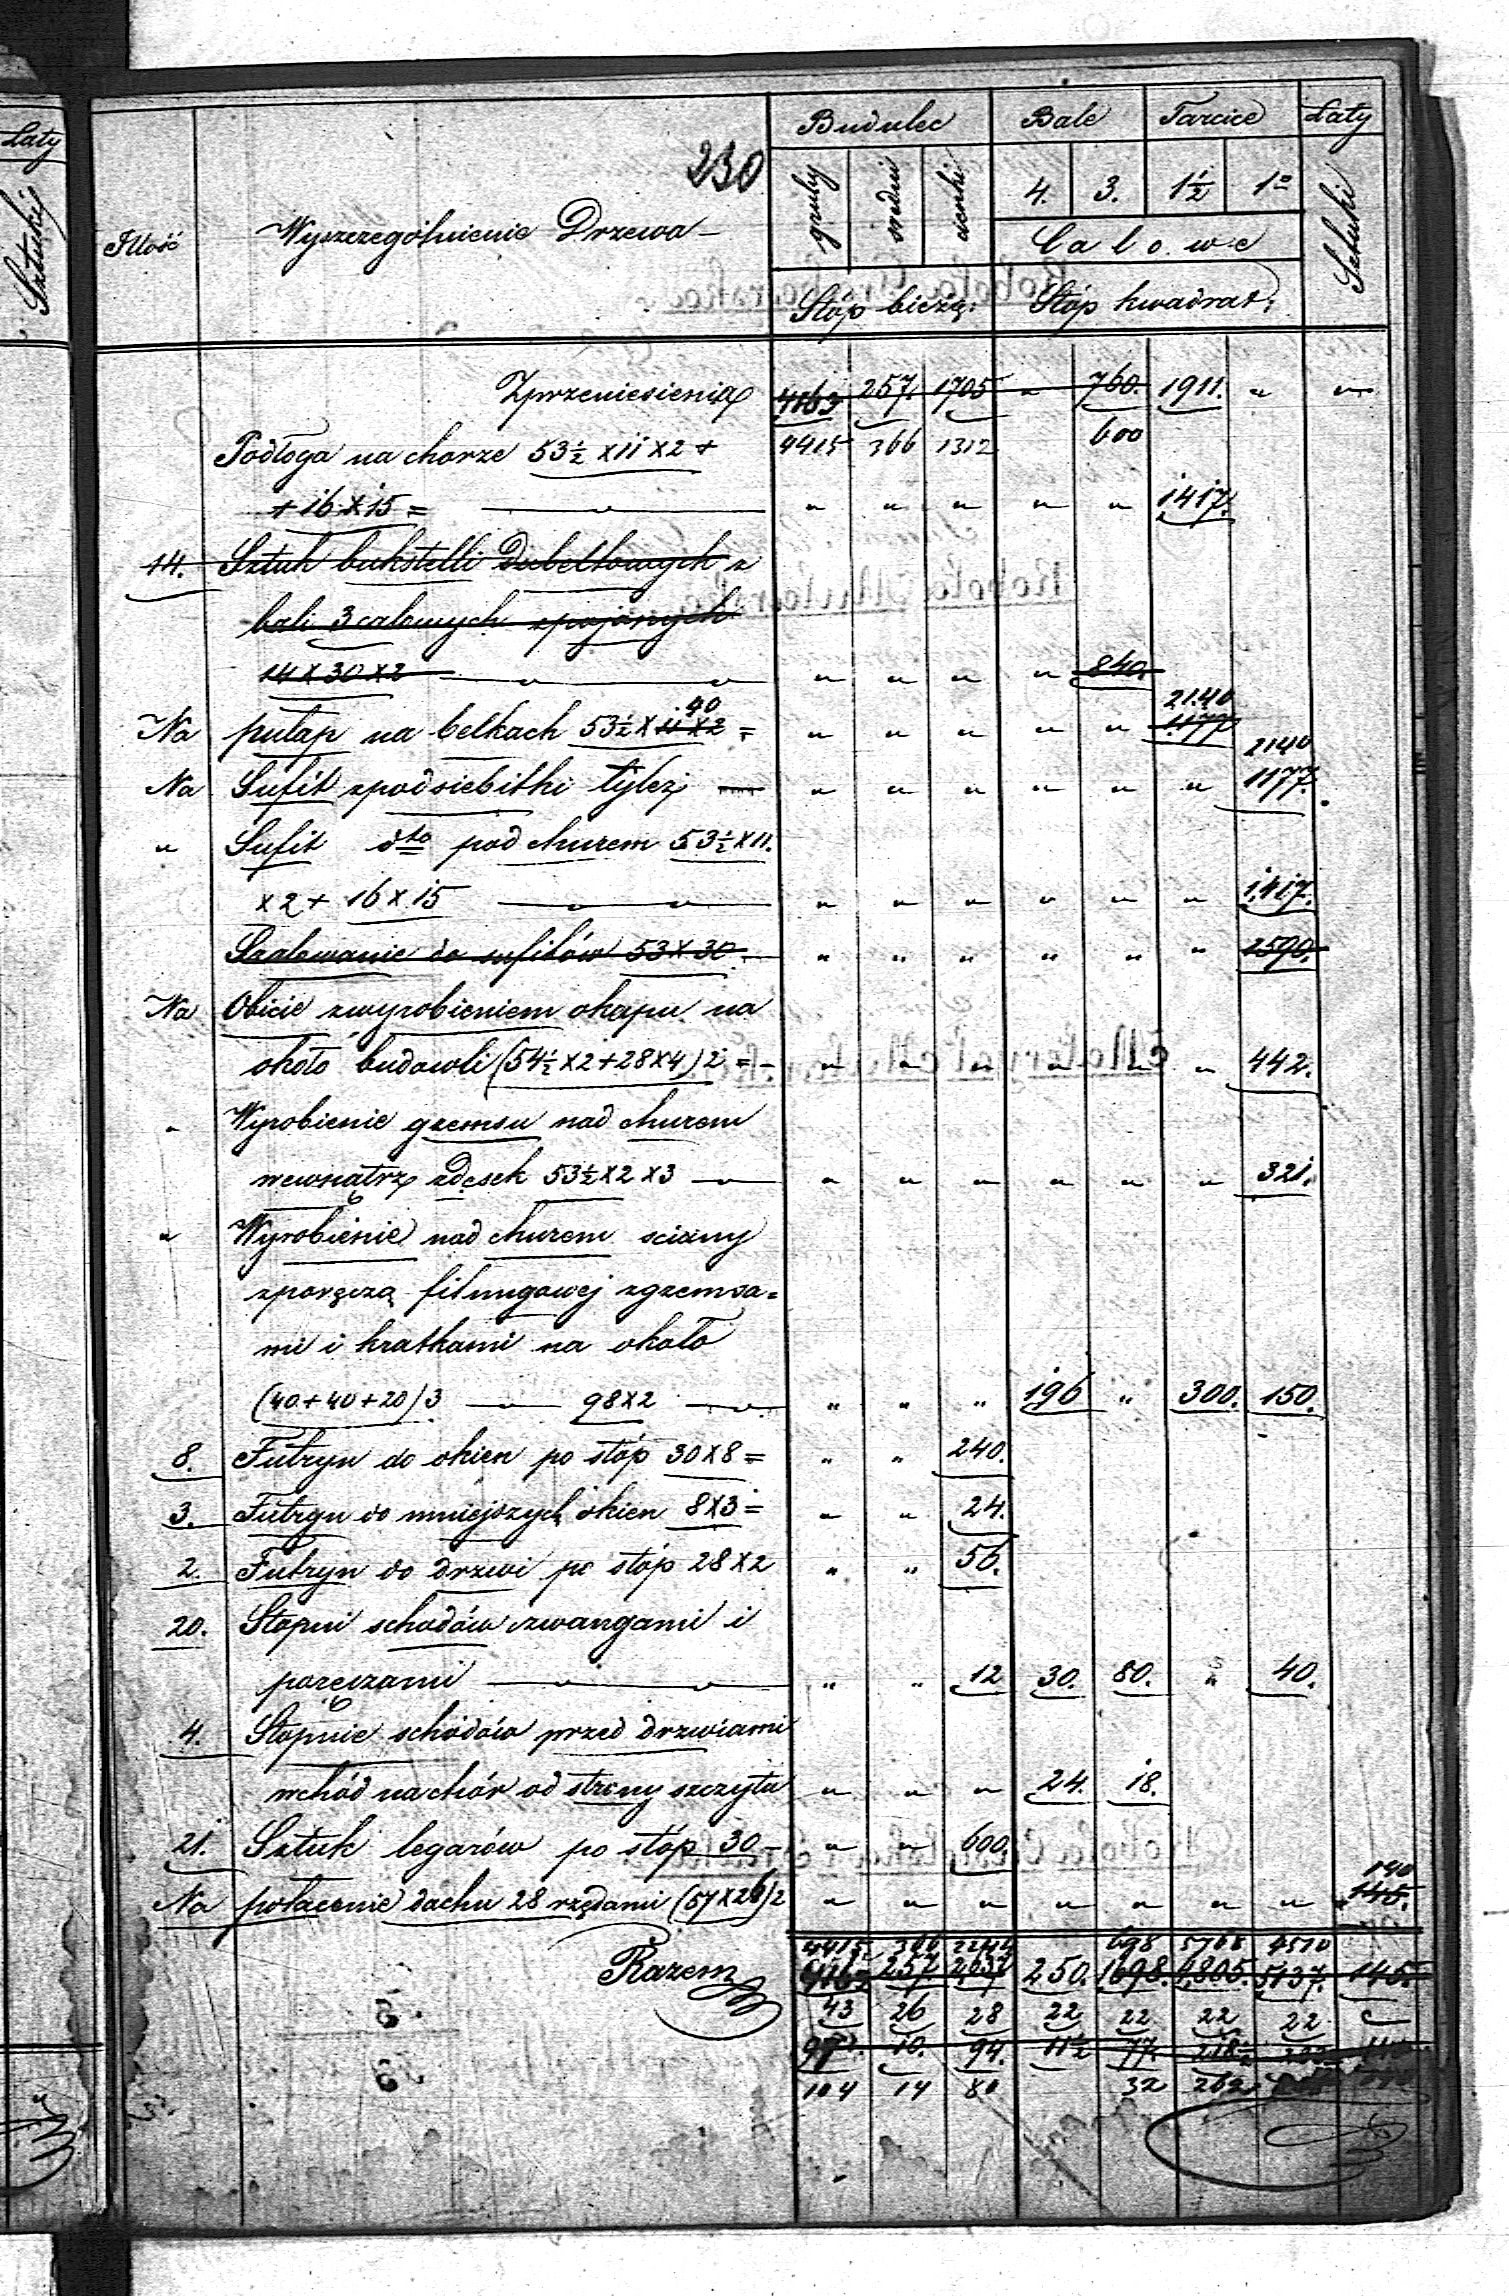 Laty
Sztuki
230
Illość
Wyszczególnienie Drzewa
Budulec
Bale
Tarcice
Łaty
gruby
średni
cienki
4.
3.
1½
1"
Sztuki
Calowe
Stóp bieżą:
Stóp kwadrat:
Zprzeniesienia 4163 257. 1705 " 760. 1911. " "
Podłoga na chorze 53½ x 11 x 2 + 4415 366 1312 600
+ 16 x 15 = " " " " " 1417.
14. Sztuk bukstelli Dubeltowych z
bali 3 calowych spojonych
14 x 30 x 2 " " " " 840.
40 2140
Na pułap na belkach 53½ x 11 x 2 = " " " " " 1177
2140
Na Sufit zpodsiebitki tyleż " " " " " " 1177.
" Sufit dto pod churem 53½ x 11.
x 2 + 16 x 15 " " " " " " 1417.
Szalowanie do sufitów 53 x 30. " " " " " " 1590.
Na Obicie zwyrobieniem okapu na
około budowli (54½ x 2 + 28 x 4) 2 = " " " " " " 442.
" Wyrobienie gzemsu nad churem
wewnątrz zdesek 53½ x 2 x 3 " " " " " " 321.
" Wyrobienie nad churem sciany
zporęczą filungowej zgzemsa=
mi i kratkami na około
(40 + 40 + 20) 3 98 x 2 " " " 196 " 300. 150.
8. Futryn do okien po stóp 30 x 8 = " " 240.
3. Futryn do mniejszych okien 8 x 3 = " " 24.
2. Futryn do drzwi po stóp 28 x 2 " " 56.
20. Stopni schodów zwangami i
poręczami " " 12 30. 80. " 40.
4. Stopnie schodów przed drzwiami
wchód na chór od strony szczytu " " " 24. 18.
21. Sztuk legarów po stóp 30 " " 600.
190
Na połacenie dachu 28 rzędami (57 x 26) 2 " " " " " " " 145.
4415 366 2244 698 5768 4510
Razem 4163 257 2637 250. 1698. 4805. 5137. 145.
43 26 28 22 22 22 22
97. 10. 94. 11½ 77. 218½
104 14 80 32 262